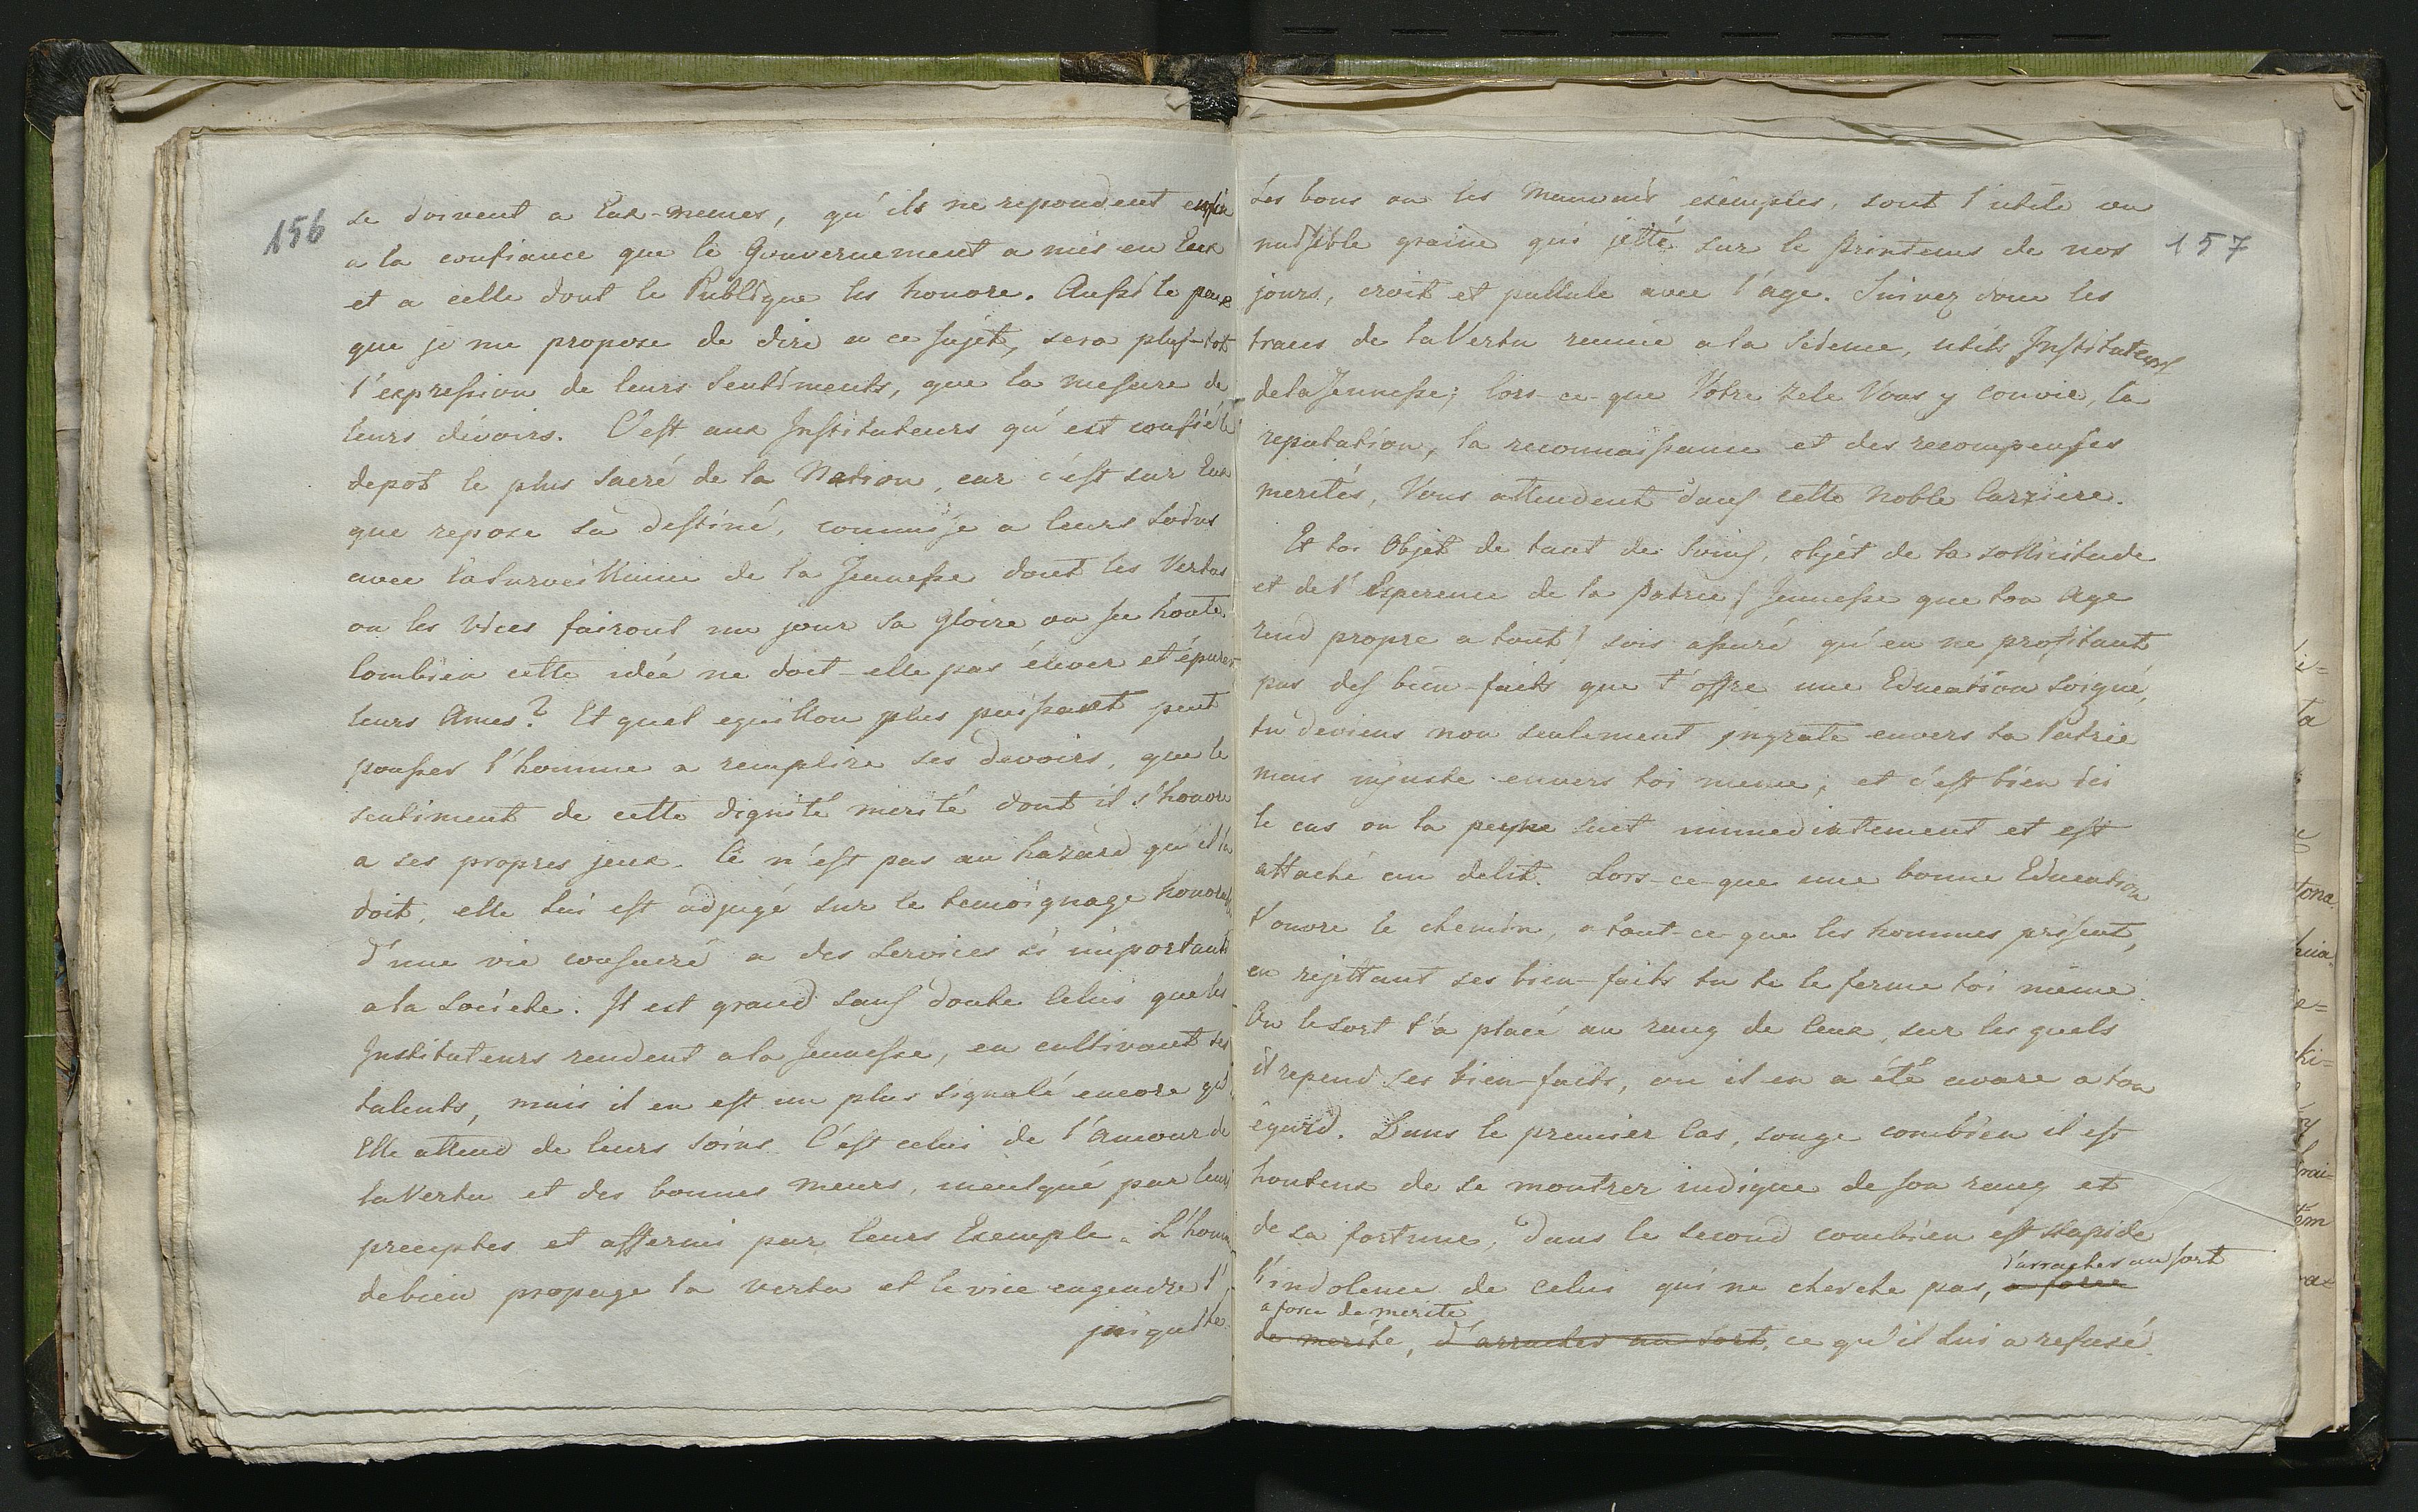 156
se doivent a Eux-memes, qu'ils ne repondent enfin
a la confiance que le Gouvernement a mis en Eux
et a celle dont le Publique les honore. Aussi le peux
que je me propose de dire a ce sujet, sera plus-tot
l'expression de leurs Sentiments, que la mesure de
leurs dévoirs. C'est aux Instituteurs qu'est confié le
depot le plus sacré de la Nation, car c'est sur Eux
que repose sa destiné, commise a leurs soins
avec la surveillance de la Jeunesse dont les Vertus
ou les Vices fairont un jour sa gloire ou sa honte.
Combien cette idée ne doit-elle pas élever et épurer
leurs Ames? Et quel eguillon plus puissant peut
pousser l'homme a remplire ses devoirs, que le
sentiment de cette dignité merité dont il s'honore
a ses propres jeux. Ce n'est pas au hazard qu'il la
doit, elle lui est adjugé sur le temoignage honorable
d'une vie consacré a des services si importants
a la Société. Il est grand sans doute Celui que les
Instituteurs rendent a la Jeunesse, en cultivant ses
talents, mais il en est un plus signalé encore qu'
Elle attend de leurs soins. C'est celui de l'Amour de
la Vertu et des bonnes meurs, inculqué par leurs
preceptes et affermi par leurs Exemple. L'homme
de bien propage la vertu et le vice engendre l'
iniquité.
157
Les bons ou les Mauvais exemples, sont l'utile ou
nuisible graine qui jetté sur le Printems de nos
jours, croit et pullule avec l'age. Suivez donc les
traces de la Vertu reunie a la Science, utils Instituteurs
de la Jeunesse; lors-ce-que Votre zele Vous y convie, la
reputation, la reconnaissance et des recompenses
merités, Vous attendent dans cette noble Carriere.
Et toi Objet de tant de Soins, objet de la sollicitude
et de l'Esperence de la Patrie! Jeunesse que ton Age
rend propre a tout! sois assuré qu'en ne profitant
pas des bien-faits que t'offre une Education soigné,
tu deviens non seulement ingrate envers ta Patrie
mais injuste envers toi meme; et c'est bien ici
le cas ou la peyne suit immediatement et est
attaché au delit. Lors-ce-que une bonne Education
t'ouvre le chemin, a tout-ce-que les hommes prisent,
en rejettant ses bien-faits tu te le ferme toi même.
Ou le sort t'a placé au rang de Ceux, sur les quels
il repend ses bien-faits, ou il en a été avare a ton
égard. Dans le premier Cas, songe combien il est
honteux de se montrer indigne de son rang et
de sa fortune, dans le second combien est stupide
d'arracher au sort
l'indolence de celui qui ne cherche pas, a force
a force de merite
de merite, d'arracher au sort, ce qu'il lui a refusé.